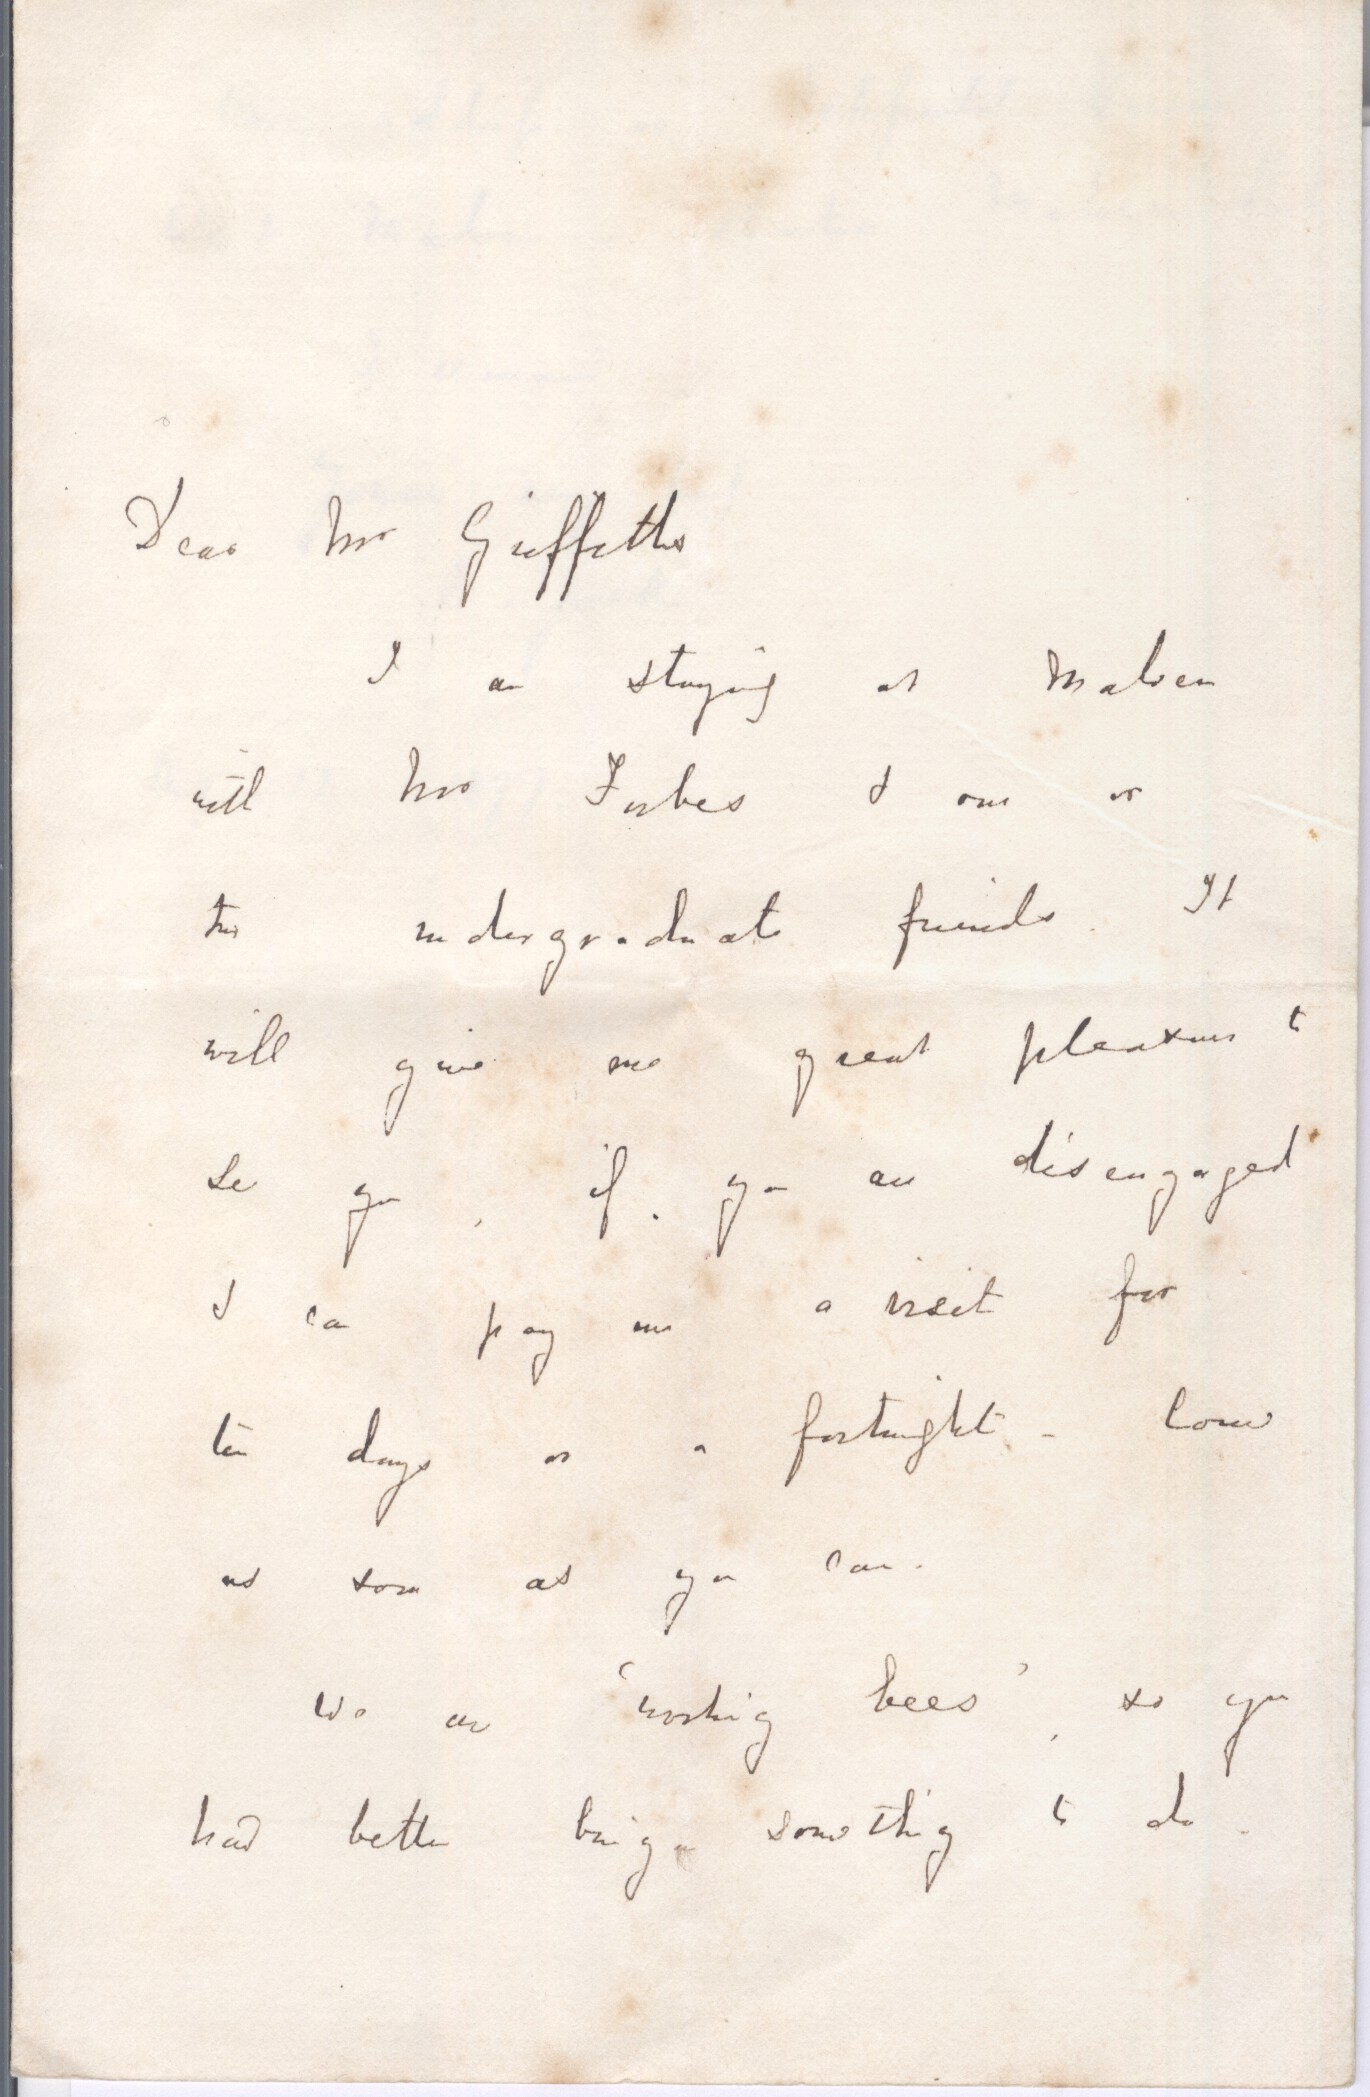 Dear Mr Griffiths
I am staying at Malvern
with Mr Forbes & one or
two undergraduate friends. It
will give me great pleasure to
see you, if you are disengaged
& can pay me a visit for
ten days or a fortnight - Come
as soon as you can.
We are 'working bees', so you
had better bring something to do.